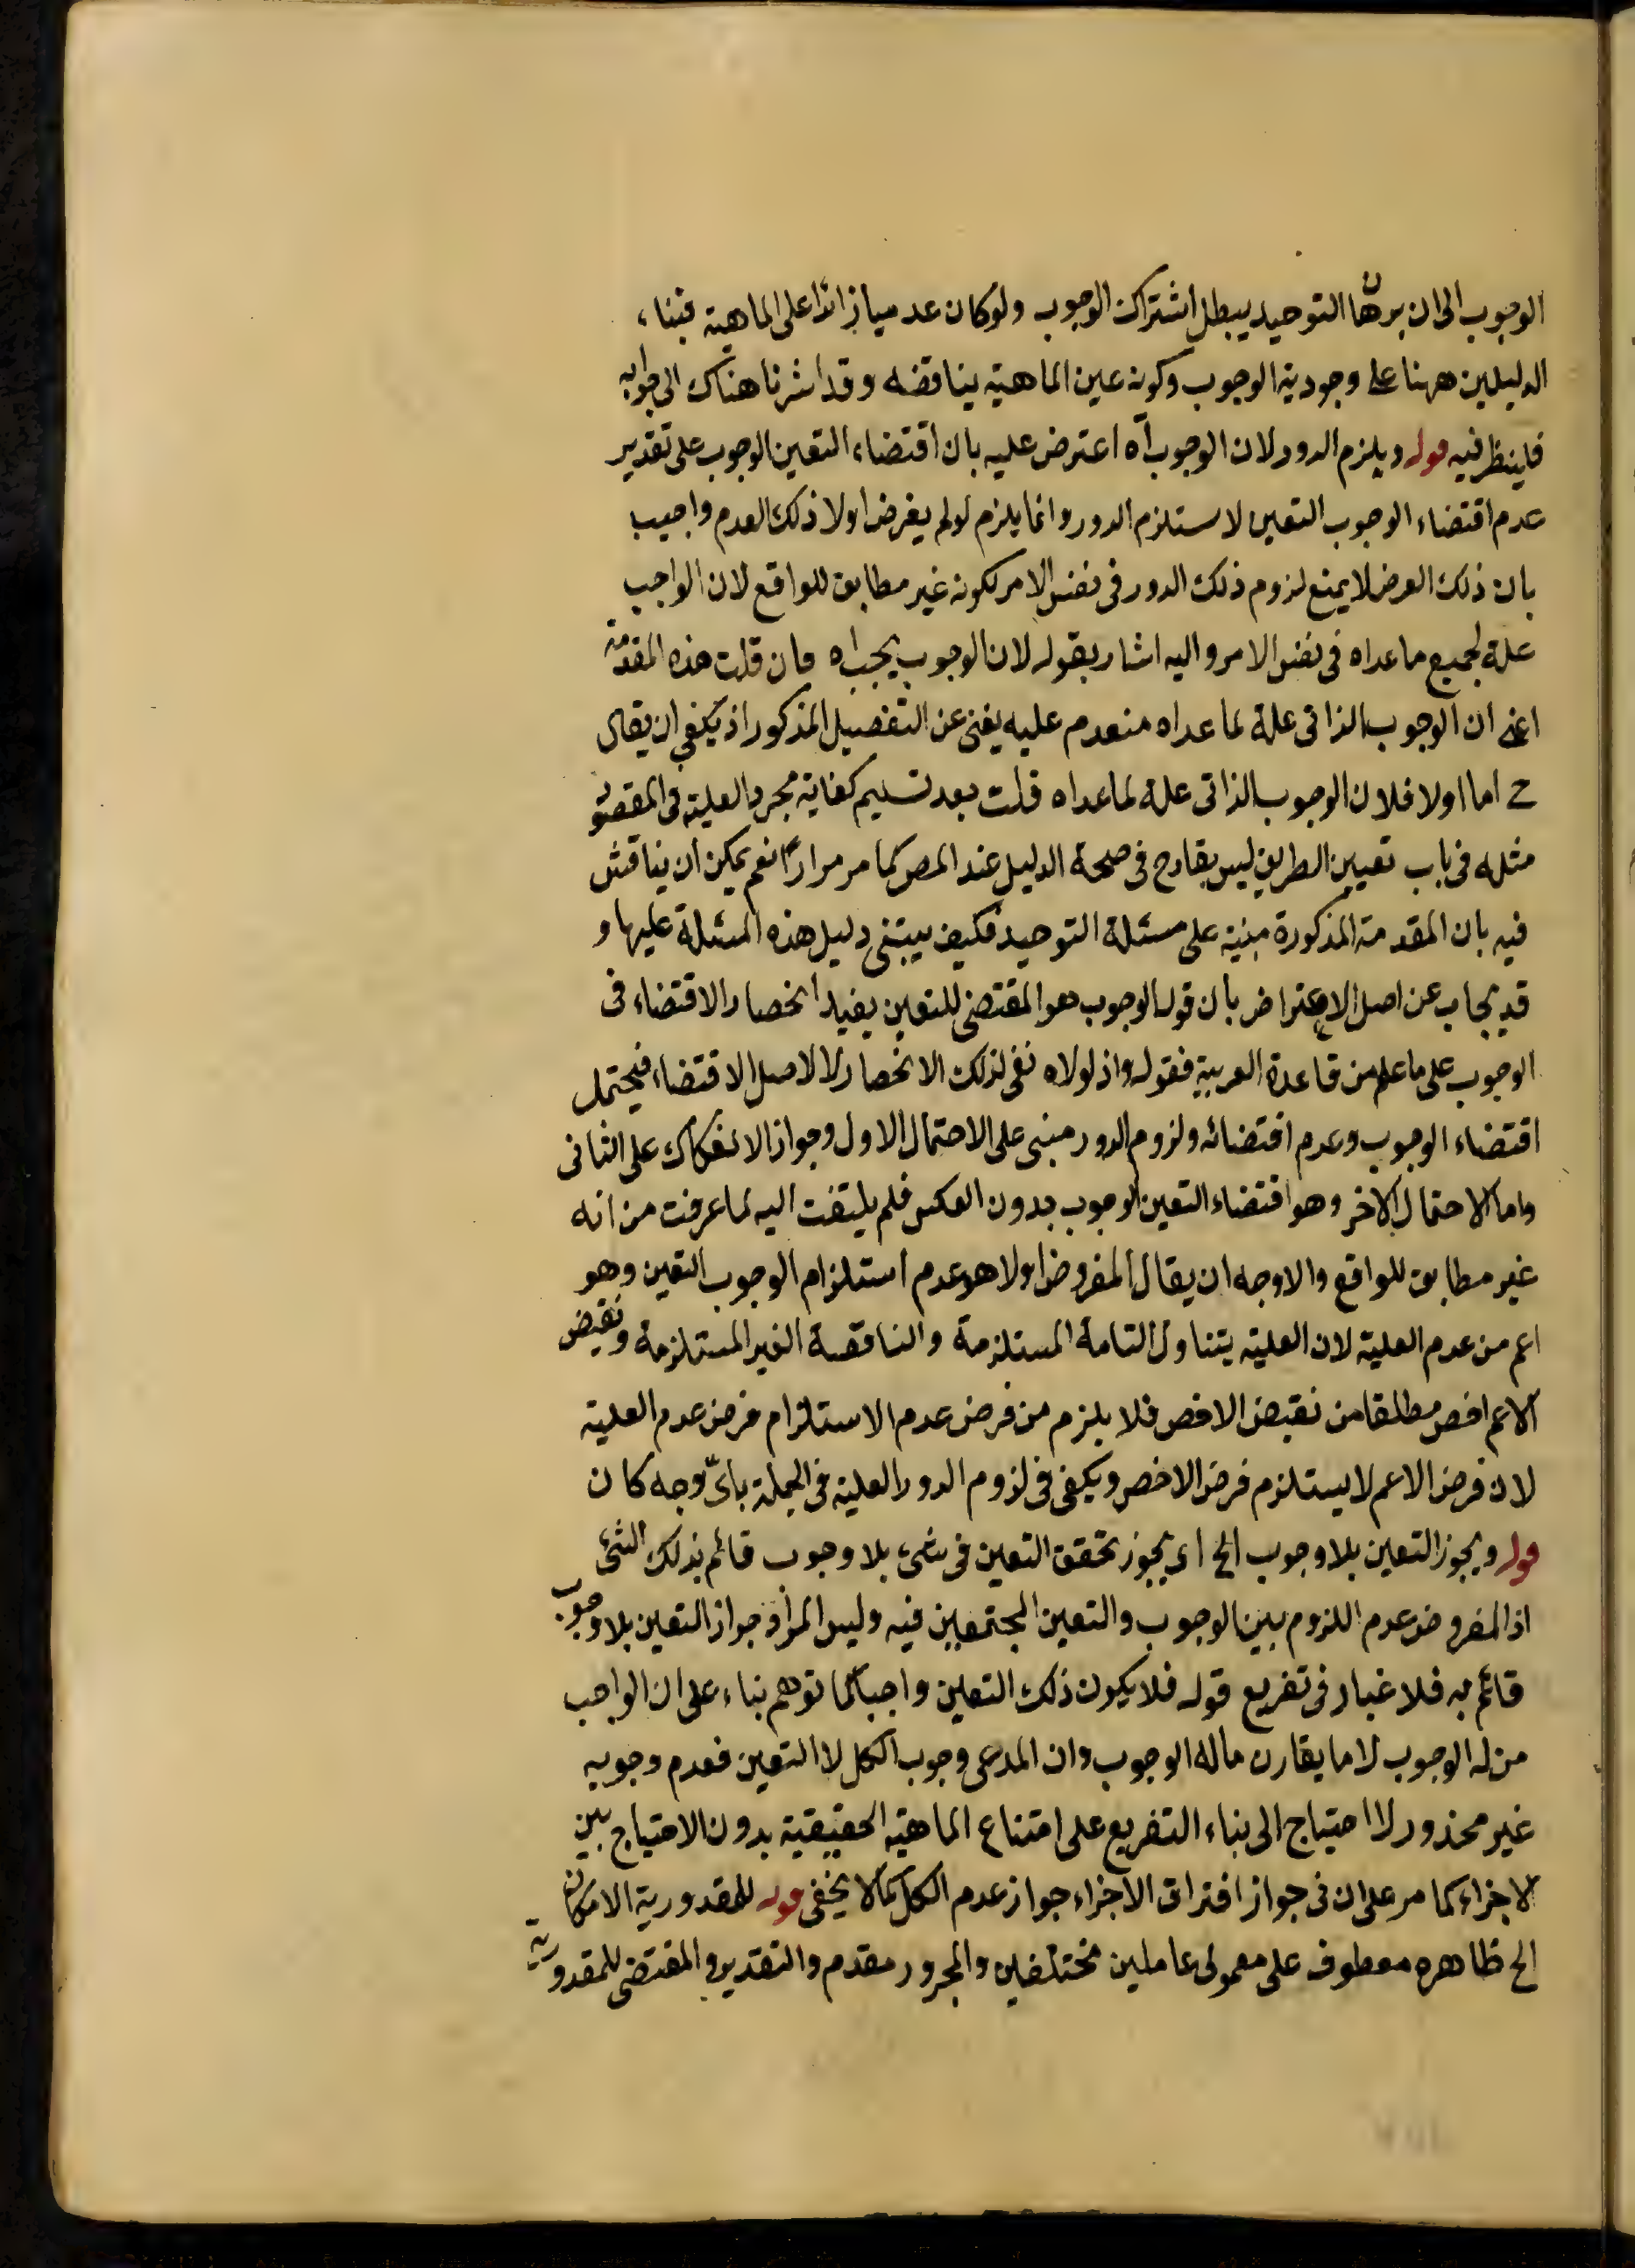 الوجوب الى ان برهان التوحيد يبطل اشتراك الوجوب ولو كان عدميا زائدا على الماهية فبناء
الدليلين ههنا على وجودية الوجوب وكونه عين الماهية يناقضه وقد اشرنا هناك الى جوابه
فلينظر فيه قوله ويلزم الدور لان الوجوب آه اعترض عليه بان اقتضاء التعين الوجوب على تقدير
عدم اقتضاء الوجوب التعين لا يستلزم الدور وانما يلزم لو لم يفرض اولا ذلك العدم واجيب
بان ذلك الفرض لا يمنع لزوم ذلك الدور فى نفس الامر لكونه غير مطابق للواقع لان الواجب
علة لجميع ما عداه فى نفس الامر واليه اشار بقوله لان الوجوب يجب اه فان قلت هذه المقدمة
اعنى ان الوجوب الذاتى علة لما عداه منعدم عليه يغنى عن التفصيل المذكور اذ يكفى ان يقال
ح اما اولا فلان الوجوب الذاتى علة لما عداه قلت بعد تسليم كفاية مجرد العلية فى المقصود
مثله فى باب تعيين الطريق ليس بقادح فى صحة الدليل عند المص كما مر مرارًا نعم يمكن ان يناقش
فيه بان المقدمة المذكورة مبنية على مسئلة التوحيد فكيف يبتنى دليل هذه المسئلة عليها و
قد يجاب عن اصل الاعتراض بان قوله الوجوب هو المقتضى للتعين يفيد انحصار الاقتضاء فى
الوجوب على ما علم من قاعدة العربية فقوله واذ لولاه نفى لذلك الانحصار لا لاصل الاقتضاء فيحتمل
اقتضاء الوجوب وعدم اقتضائه ولزوم الدور مبنى على الاحتمال الاول وجواز الانفكاك على الثانى
واما الاحتمال الاخر وهو اقتضاء التعين الوجوب بدون العكس فلم يلتفت اليه لما عرفت من انه
غير مطابق للواقع والاوجه ان يقال المفروض اولا هو عدم استلزام الوجوب التعين وهو
اعم من عدم العلية لان العلية يتناول التامة المستلزمة والناقصة الغير المستلزمة ونقيض
الاعم اخص مطلقا من نقيض الاخص فلا يلزم من فرض عدم الاستلزام فرض عدم العلية
لان فرض الاعم لا يستلزم فرض الاخص ويكفى فى لزوم الدور العلية فى الجملة باىّ وجه كان
قوله ويجوز التعين بلا وجوب الخ اى يجوز تحقق التعين فى شئ بلا وجوب قائم بذلك الشئ
اذ المفروض عدم اللزوم بين الوجوب والتعين المجتمعين فيه وليس المراد جواز التعين بلا وجوب
قائم به فلا غبار فى تفريع قوله فلا يكون ذلك التعين واجبا كما توهم بناء على ان الواجب
من له الوجوب لا ما يقارن ماله الوجوب وان المدعى وجوب الكل لا التعين فعدم وجوبه
غير محذور لا احتياج الى بناء التفريع على امتناع الماهية الحقيقية بدون الاحتياج بين
الاجزاء كما مر على ان فى جواز افتراق الاجزاء جواز عدم الكل كما لا يخفى قوله للمقدورية الامكان
الخ ظاهره معطوف على معمولى عاملين مختلفين والمجرور مقدم والتقدير والمقتضى للمقدورية